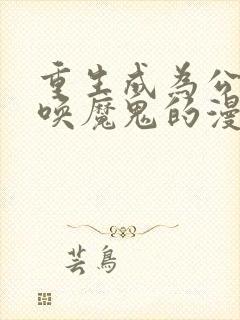 重生成为公
唤魔鬼的漫
芸鸟